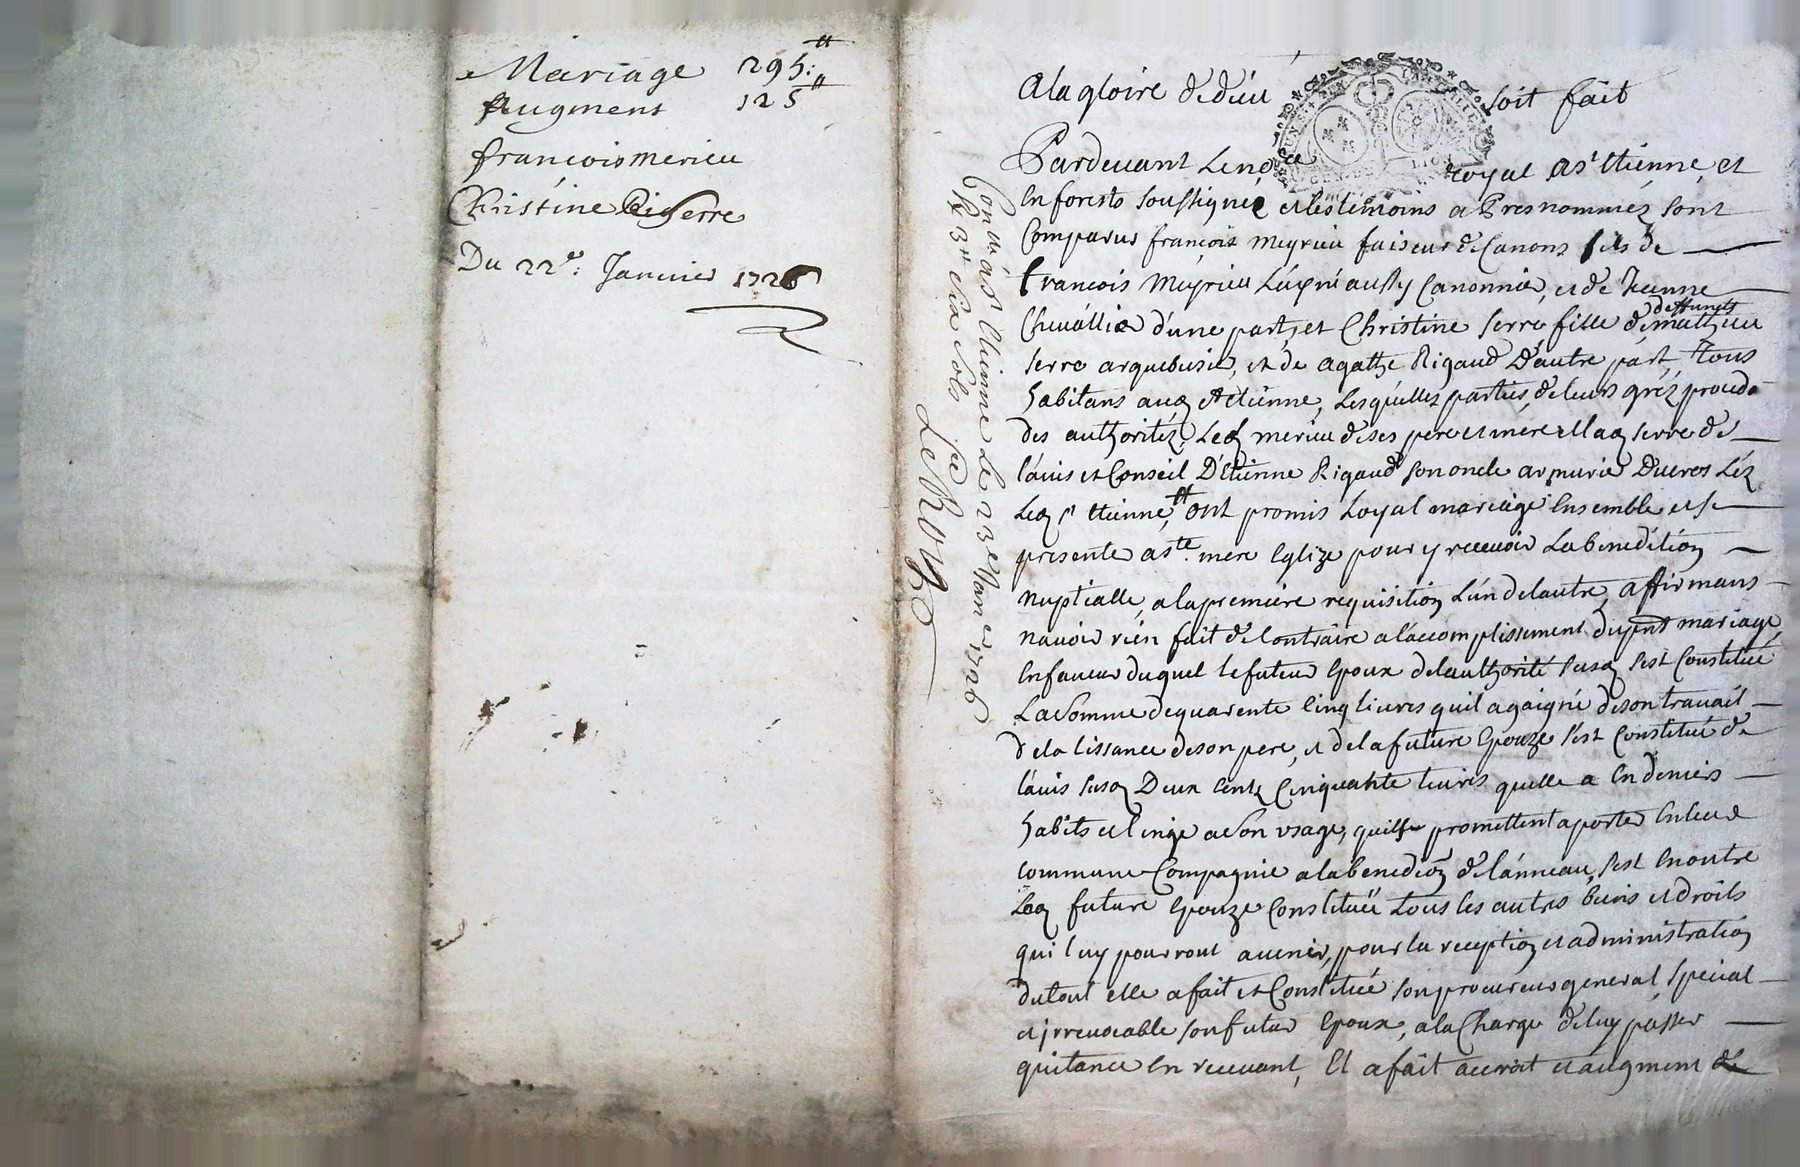 Mariage 295:#
Augment 125#
françois merieu
Christine Serre
Du 22e: Janvier 1726
Con̄ a St Etienne Le 23e Jan er 1726
R 3# six sols
Le Roy
A la gloire de dieu soit fait
Pardevant Le nore royal a St Etienne et
en forests soussigné et les temoins apres nommez sont
Comparus françois meyrieu faiseur de Canons fils de
françois Meyrieu L'ayné aussy Canonnier, et de Jeanne
Chevallier d'une part, et Christine Serre fille de deffuncts mathieu
Serre arquebusier, et de agathe Rigaud D'autre part, Tous
habitans aud St Etienne, Lesquelles parties, de leurs gréz procede
des authoritéz, Led merieu de ses pere et mere et lad serre de
l'avis et Conseil D'Etienne Rigaud son oncle armurier D léz
Led St Etienne, ont promis Loyal mariage Ensemble et se
presente a ste. mere Eglize pour y recevoir La benedition
nuptialle, a la premiere requisition L'un de lautre, affirmans
navoir rien fait de Contraire a l'accomplissement du pnt mariage
En faveur duquel le futeur Epoux de lauthorité susd s'est Constitué
La somme de quarente Cinq livres quil a gaigné de son travail
de la lissance de son pere, et de la future Epouze s'est Constitué de
l'avis susd Deux Cents Cinquante livres quelle a En deniers
habits et linge a son usage, quils promettent aporter En leur
commune Compagnie a la benedion de l'anneau, s'est En outre
Lad future Epouze Constituë tous les autres biens et droits
qui luy pourront avenir, pour la reception et administration
du tout elle a fait et Constitué son procureur general special
et jrrevocable son futur Epoux, a la Charge de luy passer
quitance En recevant, Et a fait accroit et augment de